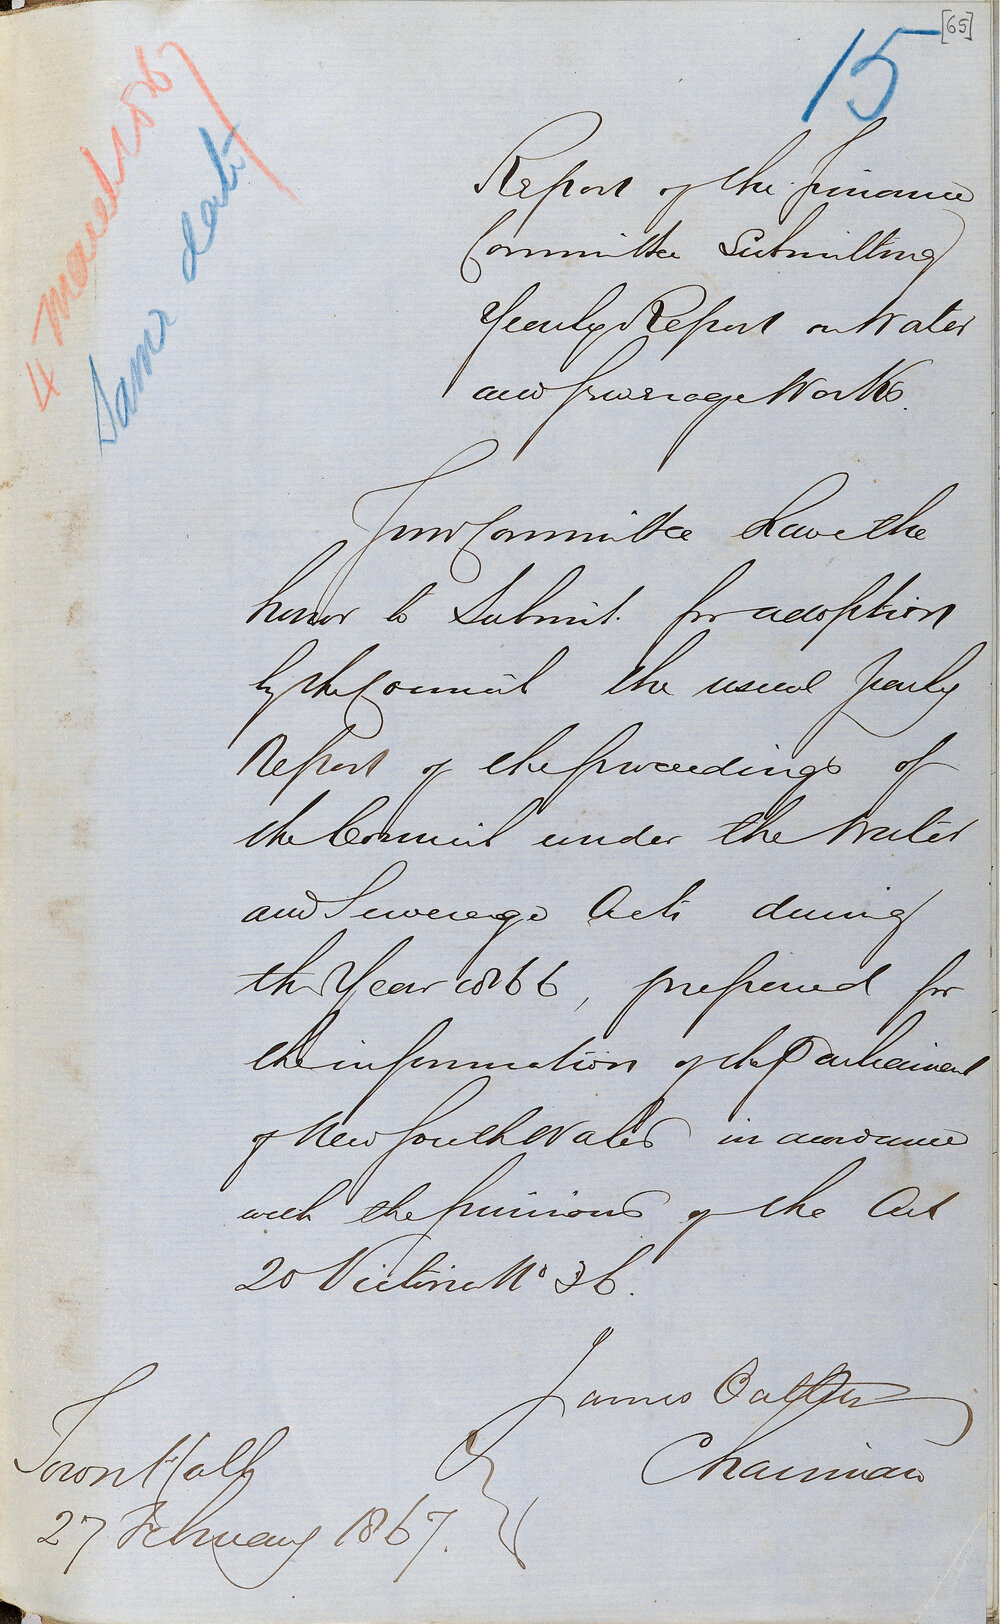 [65]
15
4 March 1867
Same date
Report of the Finance
Committee Submitting
Yearly Report on Water
and Sewerage Works.
Your Committee have the
honor to Submit for adoption
by the Council the usual Yearly
Report of the proceedings of
the Council under the Water
and Sewerage Acts during
the Year 1866, prepared for
the information of the Parliament
of New South Wales in accordance
with the provisions of the Act
20 Victoria No 36.
James Oatley
Chairman
Town Hall
27 February 1867.